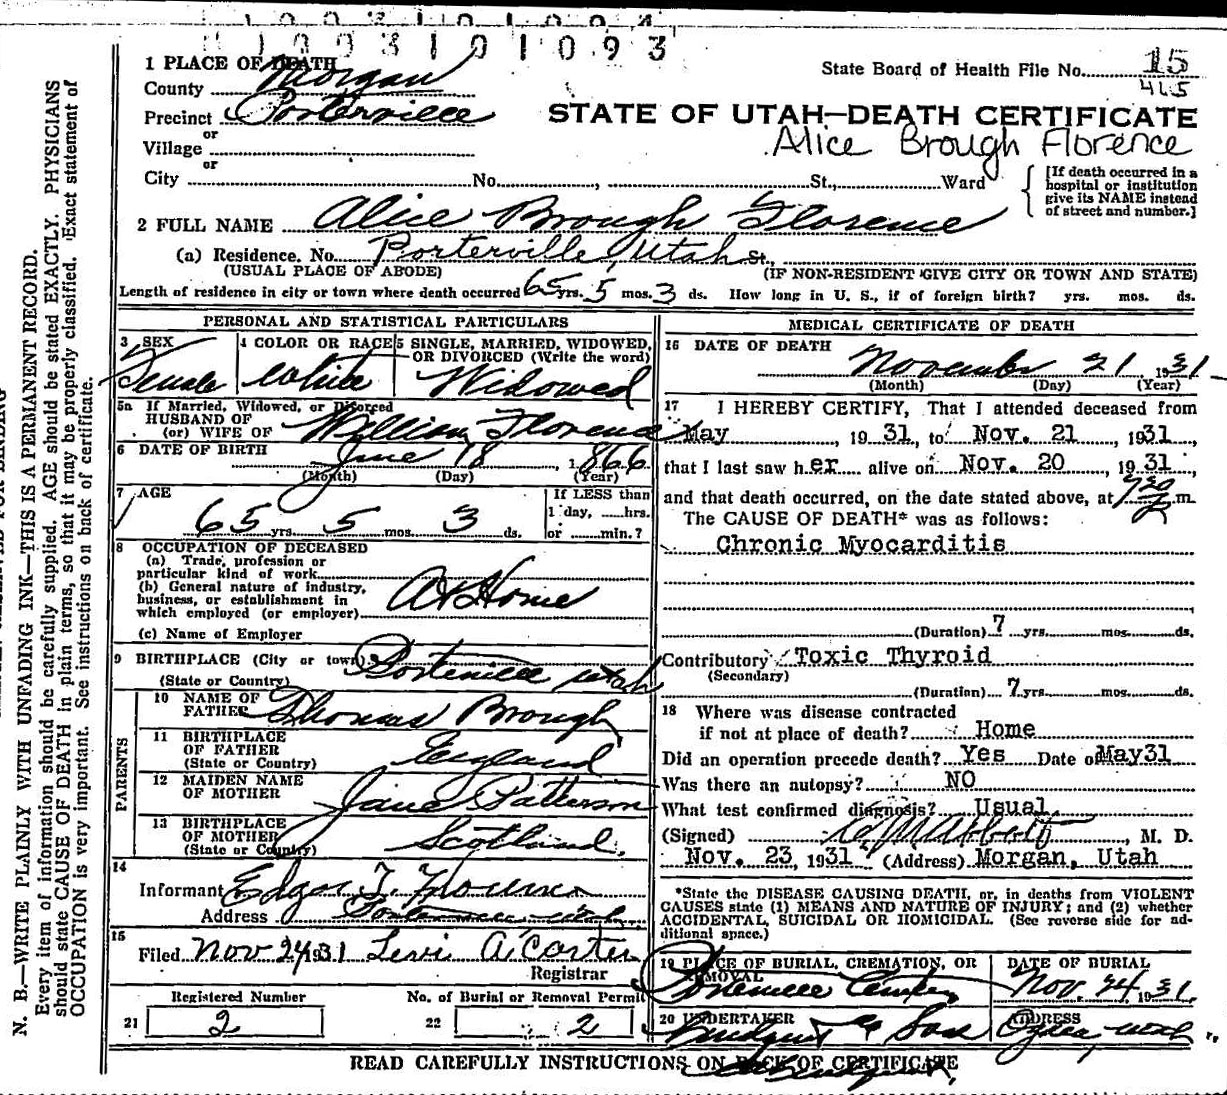 1003101093
1 PLACE OF DEATH
County Morgan
State Board of Health File No. 15
465
Precinct Porterville
STATE OF UTAH—DEATH CERTIFICATE
or
Alice Brough Florence
Village
or
City No. , St., Ward
[If death occurred in a hospital or institution give its NAME instead of street and number.]
2 FULL NAME Alice Brough Florence
(a) Residence. No. Porterville, Utah St.,
(USUAL PLACE OF ABODE) (IF NON-RESIDENT GIVE CITY OR TOWN AND STATE)
Length of residence in city or town where death occurred 65 yrs. 5 mos. 3 ds. How long in U. S., if of foreign birth? yrs. mos. ds.
PERSONAL AND STATISTICAL PARTICULARS
3 SEX
Female
4 COLOR OR RACE
White
5 SINGLE, MARRIED, WIDOWED, OR DIVORCED (Write the word)
Widowed
5a If Married, Widowed, or Divorced
HUSBAND OF
(or) WIFE OF William Florence
6 DATE OF BIRTH June 18, 1866
(Month) (Day) (Year)
7 AGE
65 yrs. 5 mos. 3 ds.
If LESS than
1 day, hrs.
or min.?
8 OCCUPATION OF DECEASED
(a) Trade, profession or
particular kind of work
(b) General nature of industry,
business, or establishment in
which employed (or employer) At Home
(c) Name of Employer
9 BIRTHPLACE (City or town) Porterville Utah
(State or Country)
PARENTS
10 NAME OF
FATHER Thomas Brough
11 BIRTHPLACE
OF FATHER England
(State or Country)
12 MAIDEN NAME
OF MOTHER Jane Patterson
13 BIRTHPLACE
OF MOTHER Scotland.
(State or Country)
14
Informant Edgar T. Florence
Address Porterville Utah
15
Filed Nov 24 1931 Levi A. Carter
Registrar
Registered Number
21 2
No. of Burial or Removal Permit
22 2
MEDICAL CERTIFICATE OF DEATH
16 DATE OF DEATH
November 21, 1931
(Month) (Day) (Year)
17 I HEREBY CERTIFY, That I attended deceased from
May, 1931, to Nov. 21, 1931,
that I last saw her alive on Nov. 20, 1931,
and that death occurred, on the date stated above, at 730 m.
The CAUSE OF DEATH* was as follows:
Chronic Myocarditis
(Duration) 7 yrs. mos. ds.
Contributory Toxic Thyroid
(Secondary)
(Duration) 7 yrs. mos. ds.
18 Where was disease contracted
if not at place of death? Home
Did an operation precede death? Yes Date of May31
Was there an autopsy? NO
What test confirmed diagnosis? Usual
(Signed) , M. D.
Nov. 23, 1931 (Address) Morgan, Utah
*State the DISEASE CAUSING DEATH, or, in deaths from VIOLENT
CAUSES state (1) MEANS AND NATURE OF INJURY; and (2) whether
ACCIDENTAL, SUICIDAL OR HOMICIDAL. (See reverse side for ad-
ditional space.)
19 PLACE OF BURIAL, CREMATION, OR
REMOVAL
Porterville
DATE OF BURIAL
Nov. 24, 1931.
20 UNDERTAKER
& Sons
ADDRESS
Ogden, Utah
READ CAREFULLY INSTRUCTIONS ON BACK OF CERTIFICATE
N. B.—WRITE PLAINLY WITH UNFADING INK—THIS IS A PERMANENT RECORD.
Every item of information should be carefully supplied. AGE should be stated EXACTLY. PHYSICIANS
should state CAUSE OF DEATH in plain terms, so that it may be properly classified. Exact statement of
OCCUPATION is very important. See instructions on back of certificate.